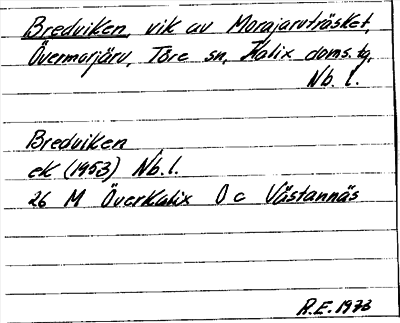 Bredviken, vik av Morajärvträsket,
Övermorjärv, Töre sn, Kalix doms.tg,
Nb. l.
Bredviken
ek (1953) Nb. l.
26 M Överkalix O c Västannäs
R.E. 1973